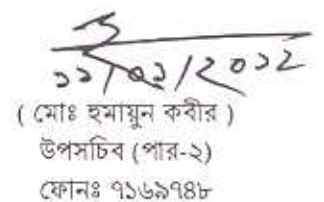 ১১/০১/২০১২
( মোঃ হুমায়ুন কবীর )
উপসচিব (পার-২)
ফোনঃ ৭১৬৯৭৪৮